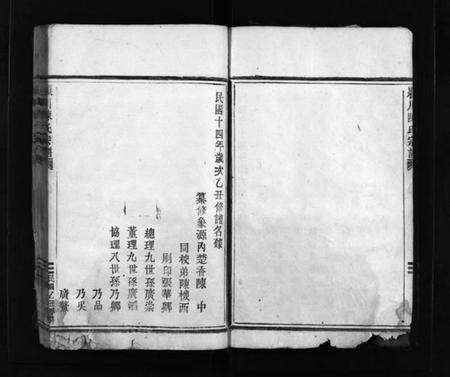 民國十四年歲次乙丑修譜名錄
纂修象源內楚香陳中
同校弟陳機西
刷印張華鄉
總理九世孫廣崇
董理九世孫廣
協理八世孫乃鄉
乃品
乃吳
廣